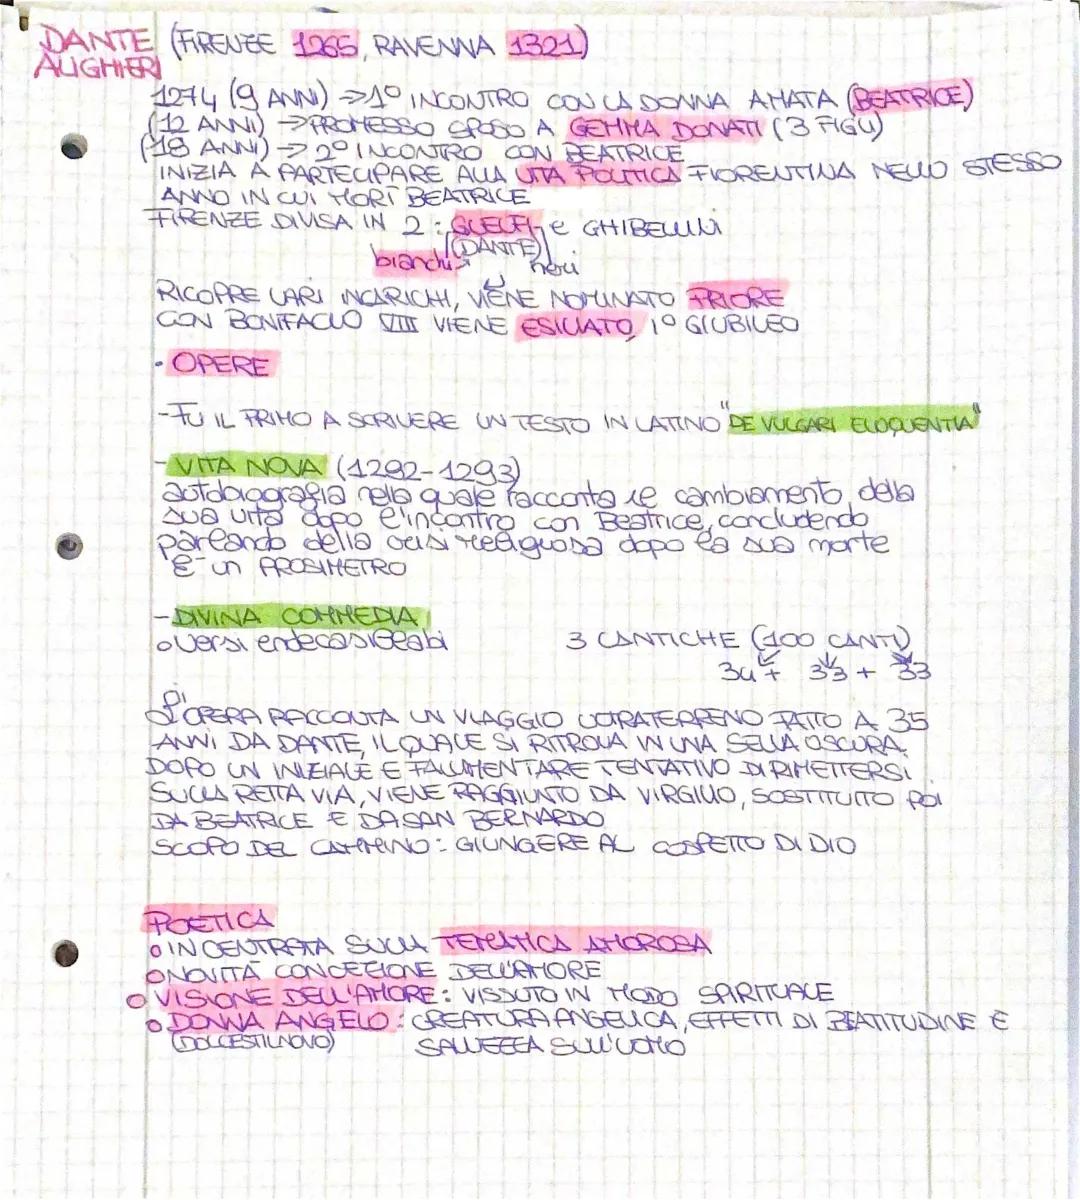 DANTE ALIGHIERI (FIRENZE 1265, RAVENNA 1321)
1274 (9 ANNI) → 1° INCONTRO CON LA DONNA AMATA (BEATRICE)
(12 ANNI) → PROMESSO SPOSO A GEMMA DONATI (3 FIGLI)
(18 ANNI) → 2° INCONTRO CON BEATRICE
INIZIA A PARTECIPARE ALLA VITA POLITICA FIORENTINA NELLO STESSO
ANNO IN CUI MORÌ BEATRICE
FIRENZE DIVISA IN 2: GUELFI e GHIBELLINI
(DANTE)
bianchi neri
RICOPRE VARI INCARICHI, VIENE NOMINATO PRIORE
CON BONIFACIO VIII VIENE ESILIATO, 1° GIUBILEO
• OPERE
- FU IL PRIMO A SCRIVERE UN TESTO IN LATINO "DE VULGARI ELOQUENTIA"
- VITA NOVA (1292-1293)
autobiografia nella quale racconta il cambiamento della
sua vita dopo l'incontro con Beatrice, concludendo
parlando della crisi religiosa dopo la sua morte
È un PROSIMETRO
- DIVINA COMMEDIA
o versi endecasillabi 3 CANTICHE (100 CANTI)
34 + 33 + 33
L'OPERA RACCONTA UN VIAGGIO ULTRATERRENO FATTO A 35
ANNI DA DANTE, IL QUALE SI RITROVA IN UNA SELVA OSCURA.
DOPO UN INIZIALE E FALLIMENTARE TENTATIVO DI RIMETTERSI
SULLA RETTA VIA, VIENE RAGGIUNTO DA VIRGILIO, SOSTITUITO POI
DA BEATRICE E DA SAN BERNARDO
SCOPO DEL CAMMINO: GIUNGERE AL COSPETTO DI DIO
POETICA
o INCENTRATA SULLA TEMATICA AMOROSA
o NOVITÀ CONCEZIONE DELL'AMORE
o VISIONE DELL'AMORE: VISSUTO IN MODO SPIRITUALE
o DONNA ANGELO: CREATURA ANGELICA, EFFETTI DI BEATITUDINE E
(DOLCESTILNOVO) SALVEZZA SULL'UOMO